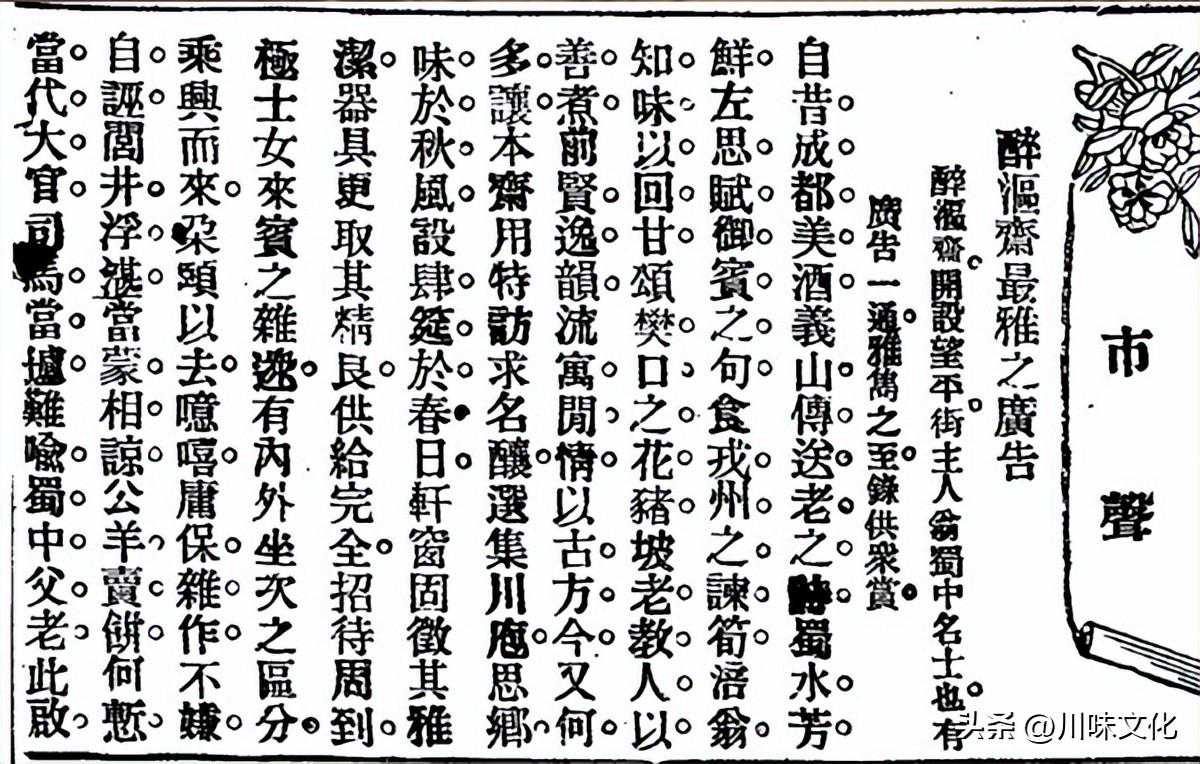 市聲
醉漚齋最雅之廣告
醉漚齋開設望平街主人翁蜀中名士也有
廣告一通雅雋之至錄供衆賞
自昔成都美酒義山傳送老之蜀水芳
鮮左思賦御賓之句食戎州之諫筍涪翁
知味以回甘頌樊口之花豬坡老教人以
善煮前賢逸韻流寓閒情以古方今又何
多讓本齋用特訪求名釀選集川庖思鄉
味於秋風設肆筵於春日軒窗固徵其雅
潔器具更取其精良供給完全招待周到
極士女來賓之雜遝有內外坐次之區分
乘興而來朶頤以去噫嘻庸保雜作不嫌
自誣閭井浮湛當蒙相諒公羊賣餅何慙
當代大官司馬當壚難喻蜀中父老此啟
头条 @川味文化